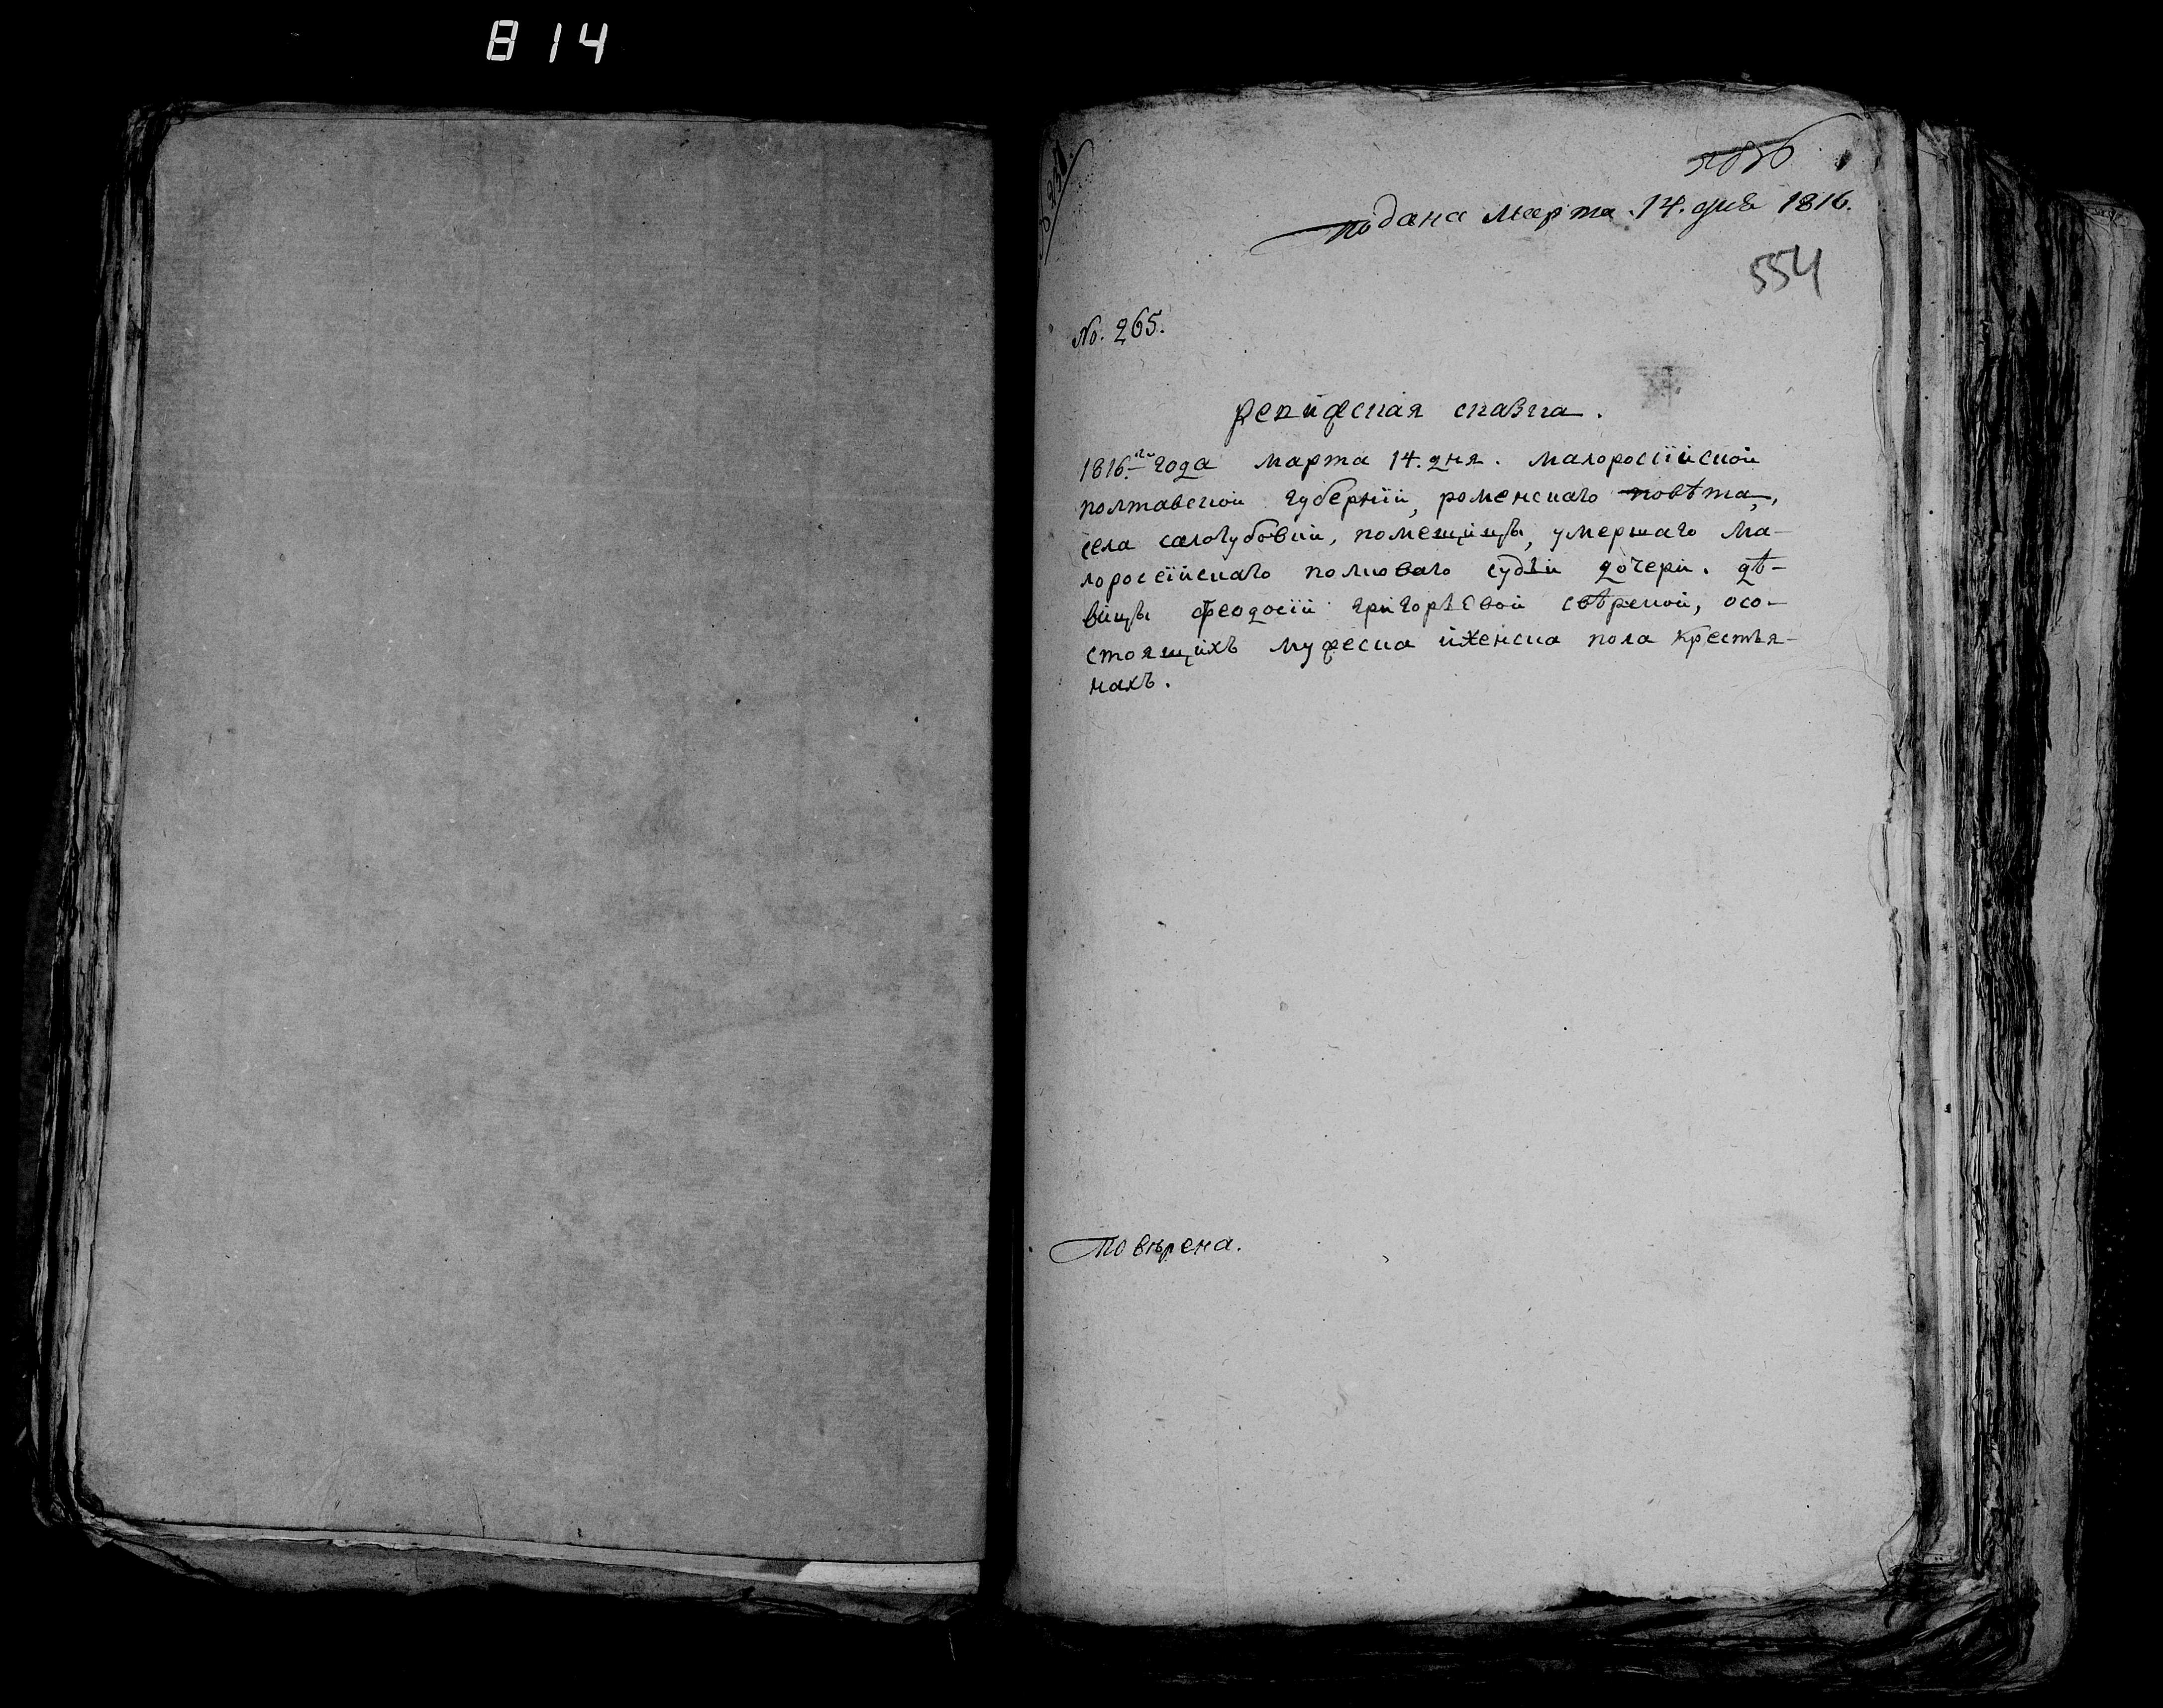 814
подана марта 14. дня 1816.
554
No. 265.
ревижская сказка.
1816.го года марта 14. дня. малоросїйской
полтавской губернїи, роменскаго повѣта,
села салогубовки, помещицы, умершаго ма-
лоросейискаго полковаго судьи дочери. дѣ-
вицы феодосїи григорьевой свѣрской, осо-
стоящихъ мужеска иженска пола крестья-
нахъ.
Повѣрена.